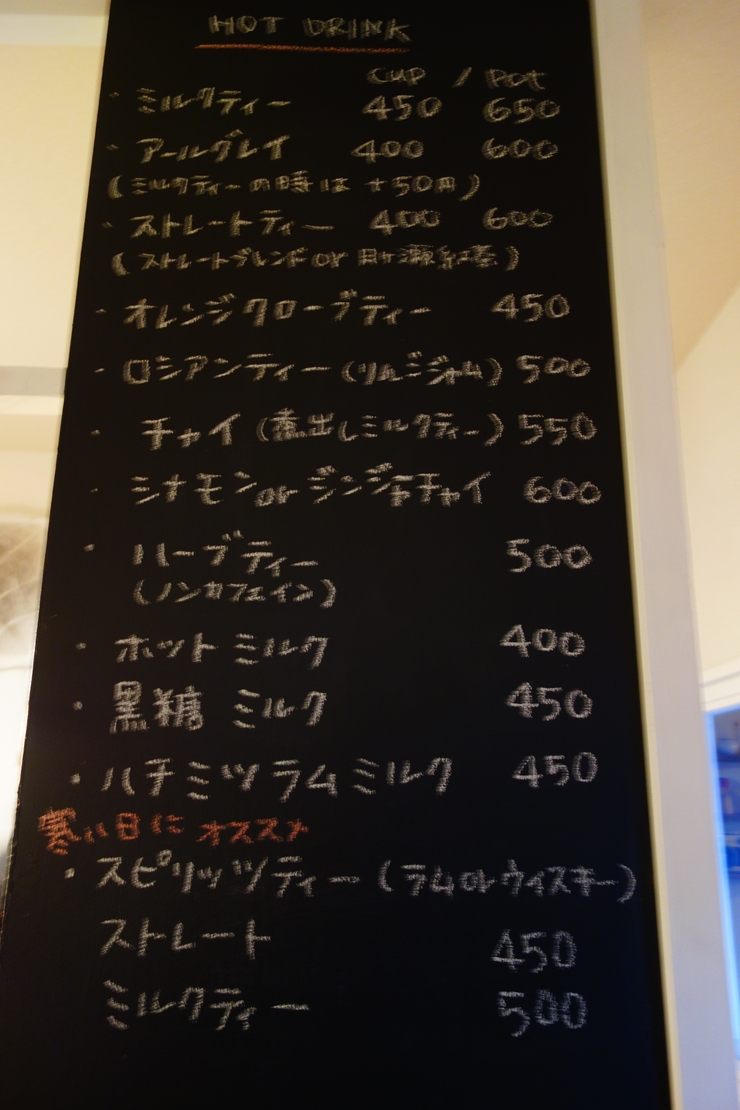 HOT DRINK
Cup / Pot
・ミルクティー 450 650
・アールグレイ 400 600
(ミルクティーの時は +50円)
・ストレートティー 400 600
(ストレートブレンド or 月ヶ瀬紅茶)
・オレンジクローブティー 450
・ロシアンティー(りんごジャム) 500
・チャイ(煮出しミルクティー) 550
・シナモン or ジンジャーチャイ 600
・ハーブティー 500
(ノンカフェイン)
・ホットミルク 400
・黒糖ミルク 450
・ハチミツラムミルク 450
寒い日にオススメ
・スピリッツティー(ラム or ウィスキー)
ストレート 450
ミルクティー 500